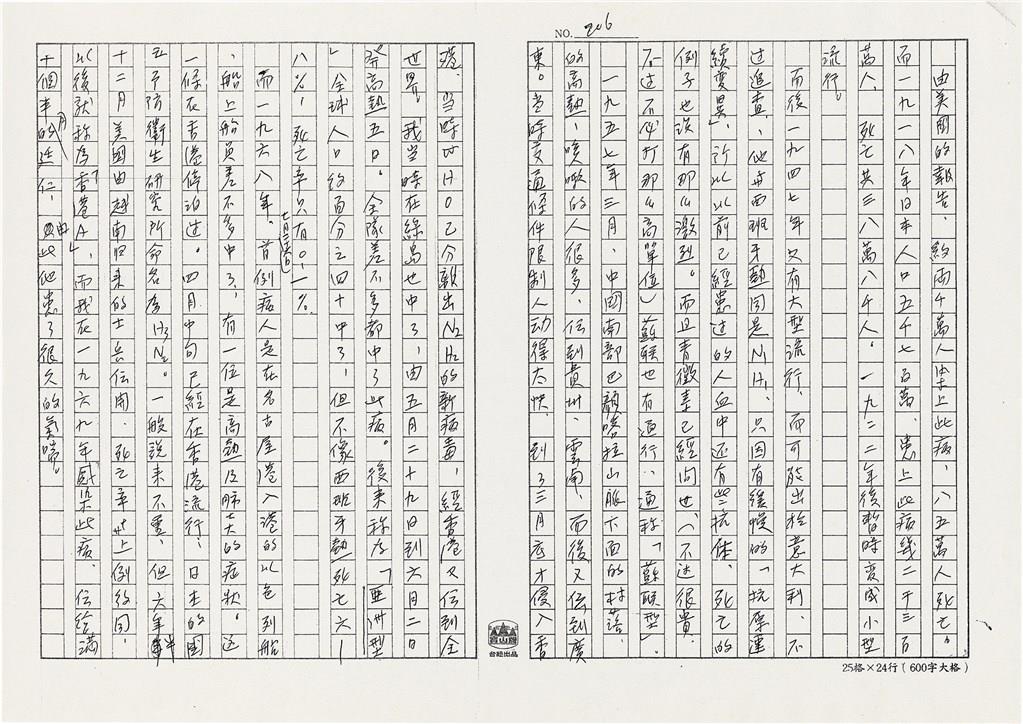 NO. 206
由美國的報告，約兩千萬人患上此病，八五萬人死亡。
而一九一八年日本人口五千七百萬，患上此病幾二千三百
萬人，死亡共三八萬八千人。一九二二年後暫時變成小型
流行。
而後一九四七年又有大型流行，而可能出於意大利，不
過追查，他與西班牙熱同是N₁H₁，只因有緩慢的「抗原連
續變異」，所以以前已經患过的人血中还有些抗体，死亡的
例子也沒有那么激烈。而且青黴素已經问世，（不过很貴，
不过不必打那么高單位）蘇联也有流行，通称「蘇联型」
一九五七年三月，中國南部巴顏喀拉山脈下面的村落，
的高熱、咳嗽的人很多，伝到貴州、雲南，而後又伝到廣
東。當時交通條件限制人动得太快，到了三月底才侵入香
港，当時的H0已分裂出N₂H₂的新病毒，經香港又伝到全
世界。我当時在綠島也中了，由五月二十九日到六月二日
發高熱五日。全隊差不多都中了此病。後來称为「亜洲型
」全球人口約百分之四十中了，但不像西班牙熱死亡六—
八％，死亡率只有0.1％。
而一九六八年七月三日，首例病人是在名古屋港入港的以色列船
，船上船員差不多中了，有一位是高熱及肺炎的症狀。这
一條在香港停泊过。四月中旬已經在香港流行，日本的國
立予防衛生研究所命名为H₃N₂。一般說来不重，但六年半
十二月美國由越南归来的士兵伝開，死亡率比上例約同，
以後就称为「香港A」，而我在一九六九年感染此病，伝給滿
十個半月的廷仁，由此他患了很久的氣喘。
台陸出品
25格×24行（600字大格）